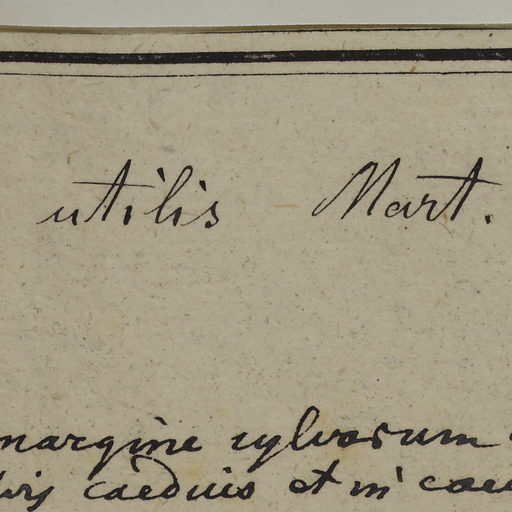 utilis Mart.
margine sylvarum
caeduis et in